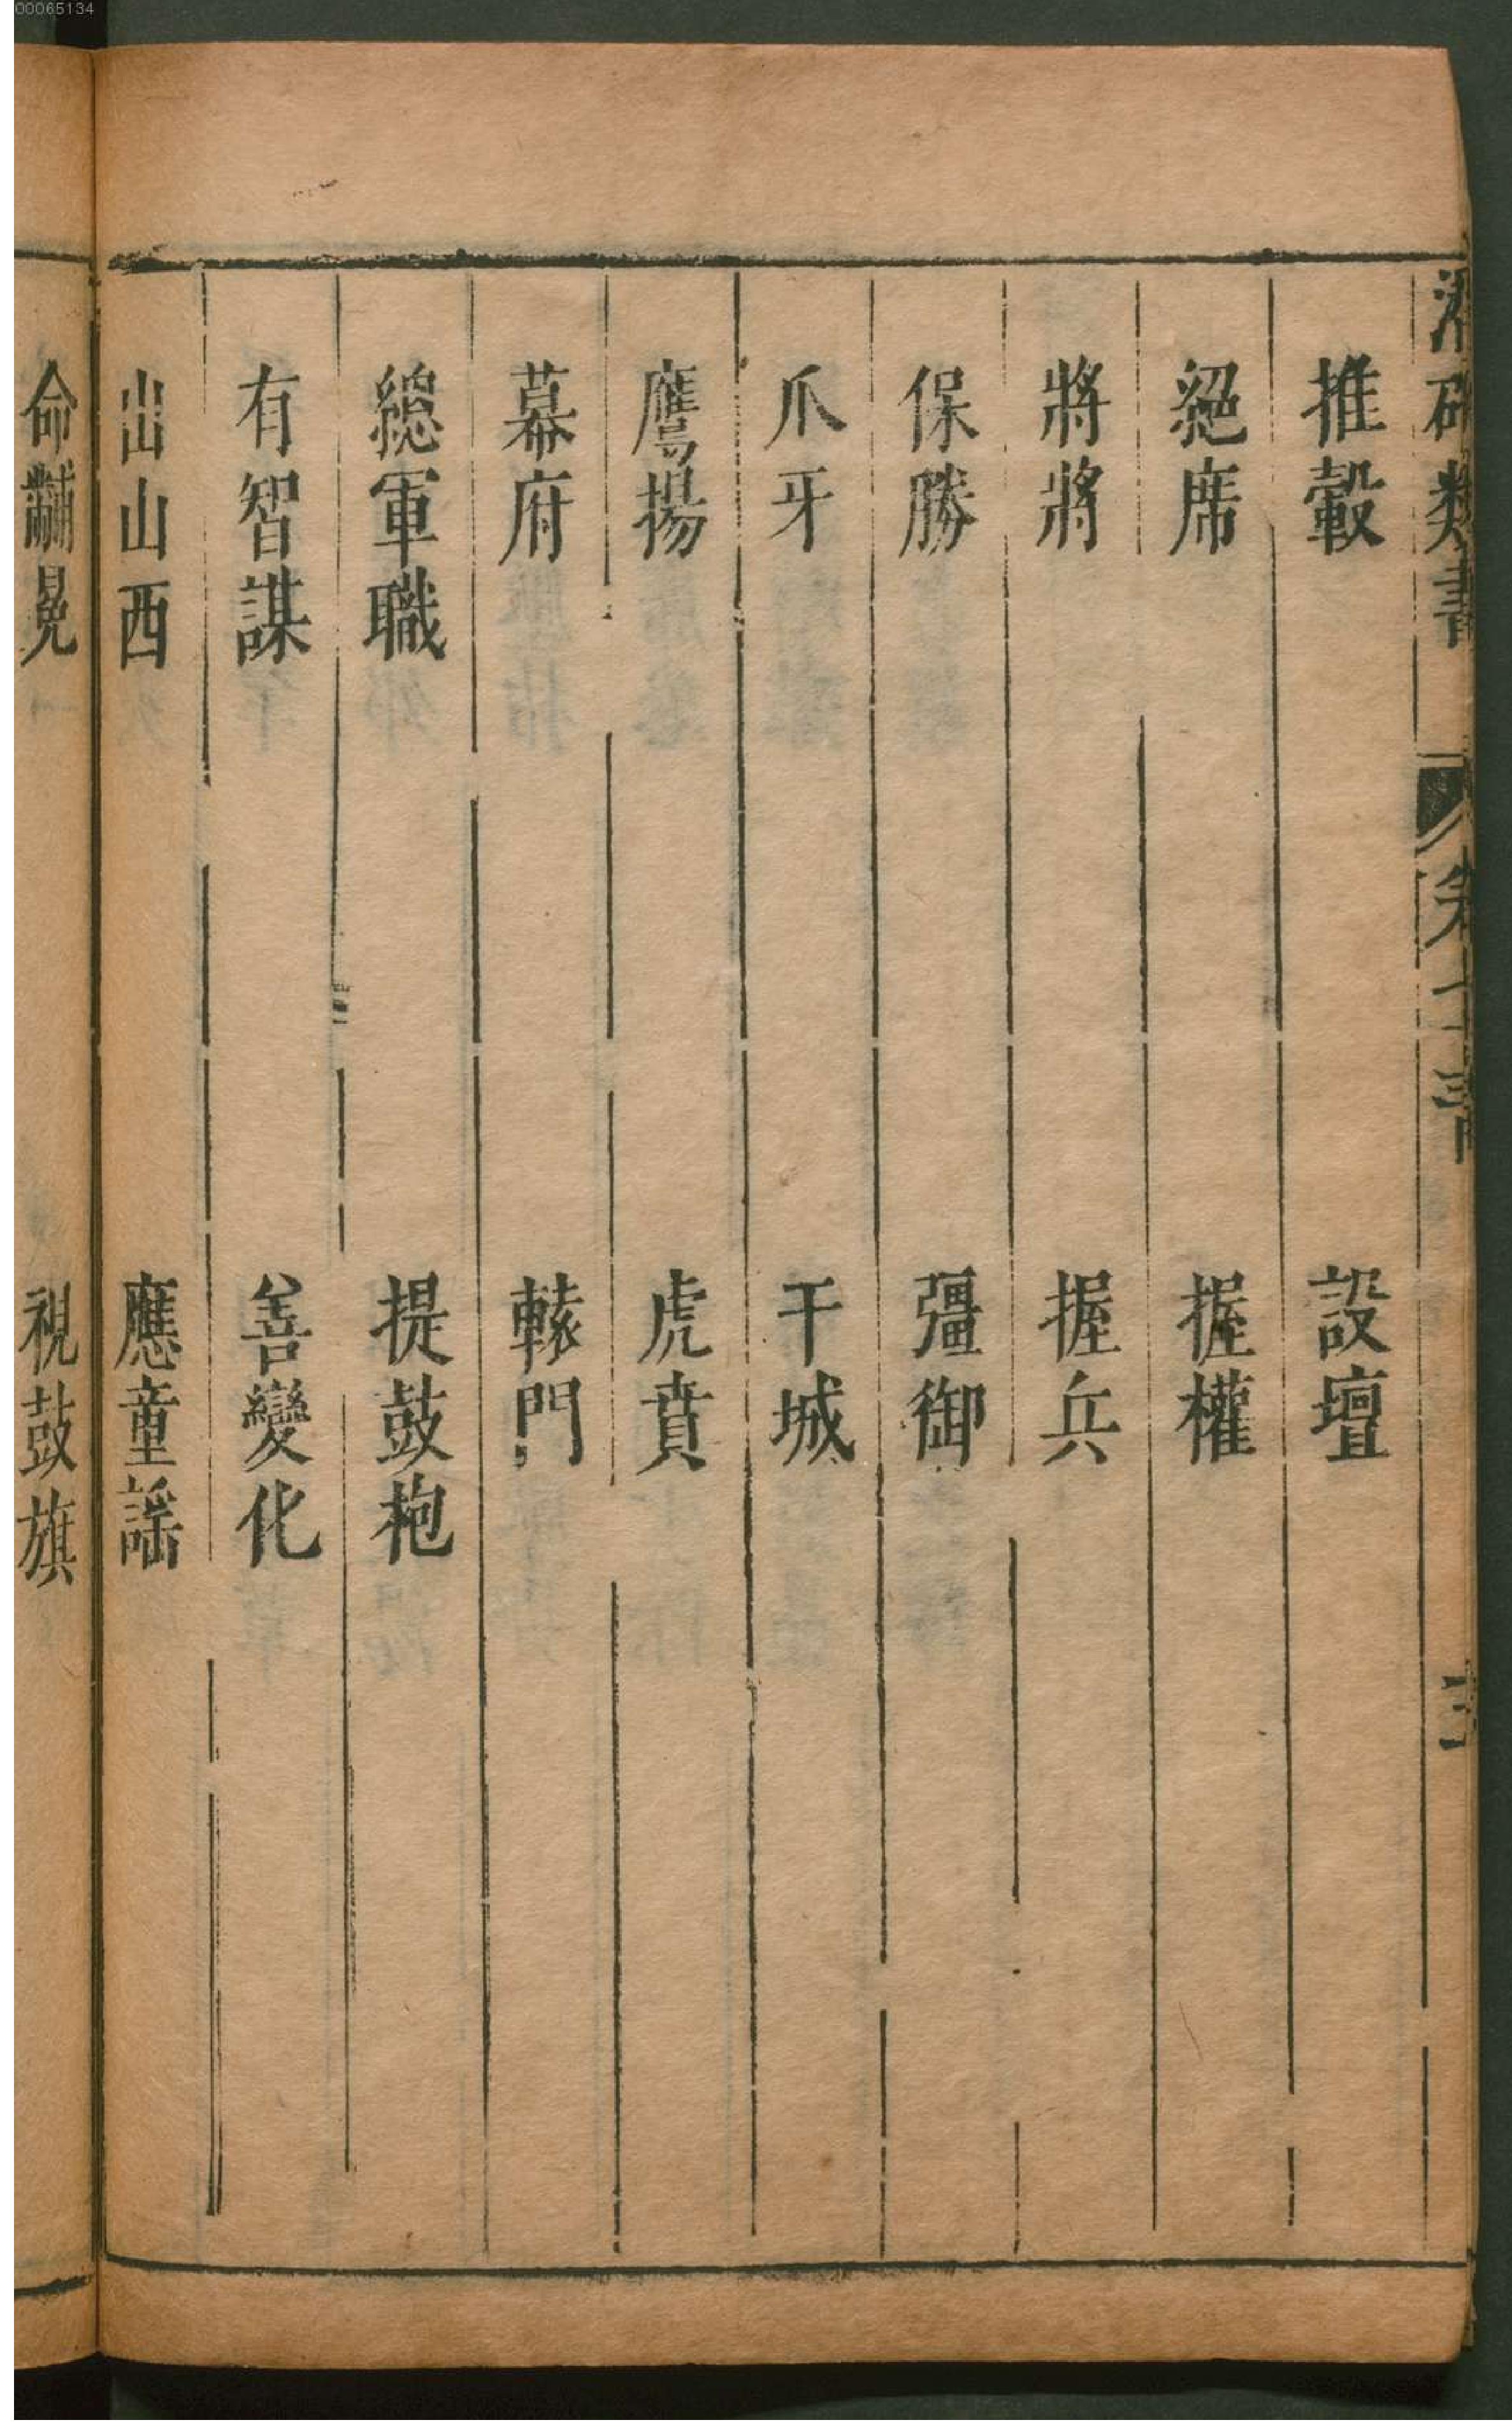 推轂 設壇
絕席 握權
將將 握兵
保勝 彊御
爪牙 干城
鷹揚 虎賁
幕府 轅門
緫軍職 提鼓枹
有智謀 善變化
出山西 應童謡
命黼冕 視鼓旗
類書
三
00065134